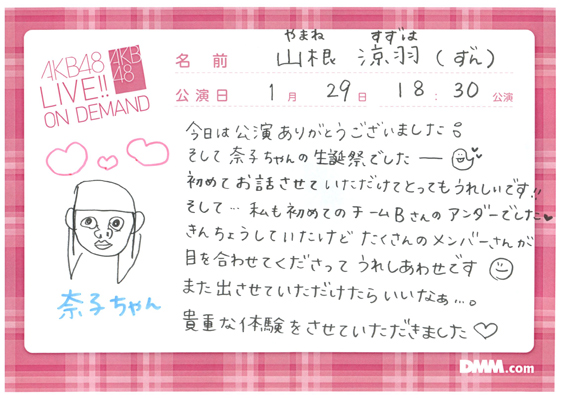 AKB48
LIVE!!
ON DEMAND
AKB
48
やまね すずは
名前 山根 涼羽(ずん)
公演日 1月 29日 18:30 公演
今日は公演ありがとうございました
そして奈子ちゃんの生誕祭でしたー
初めてお話させていただけてとってもうれしいです!!
そして…私も初めてのチームBさんのアンダーでした
きんちょうしていたけど たくさんのメンバーさんが
目を合わせてくださって うれしあわせです
また出させていただけたらいいなぁ…。
貴重な体験をさせていただきました♡
奈子ちゃん
DMM.com